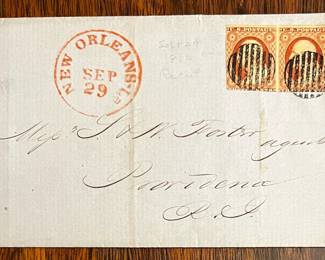 NEW ORLEANS La
SEP
29
U.S. POSTAGE
U.S. POSTAGE
Mess S & W Foster
agents
Providence
R.I.